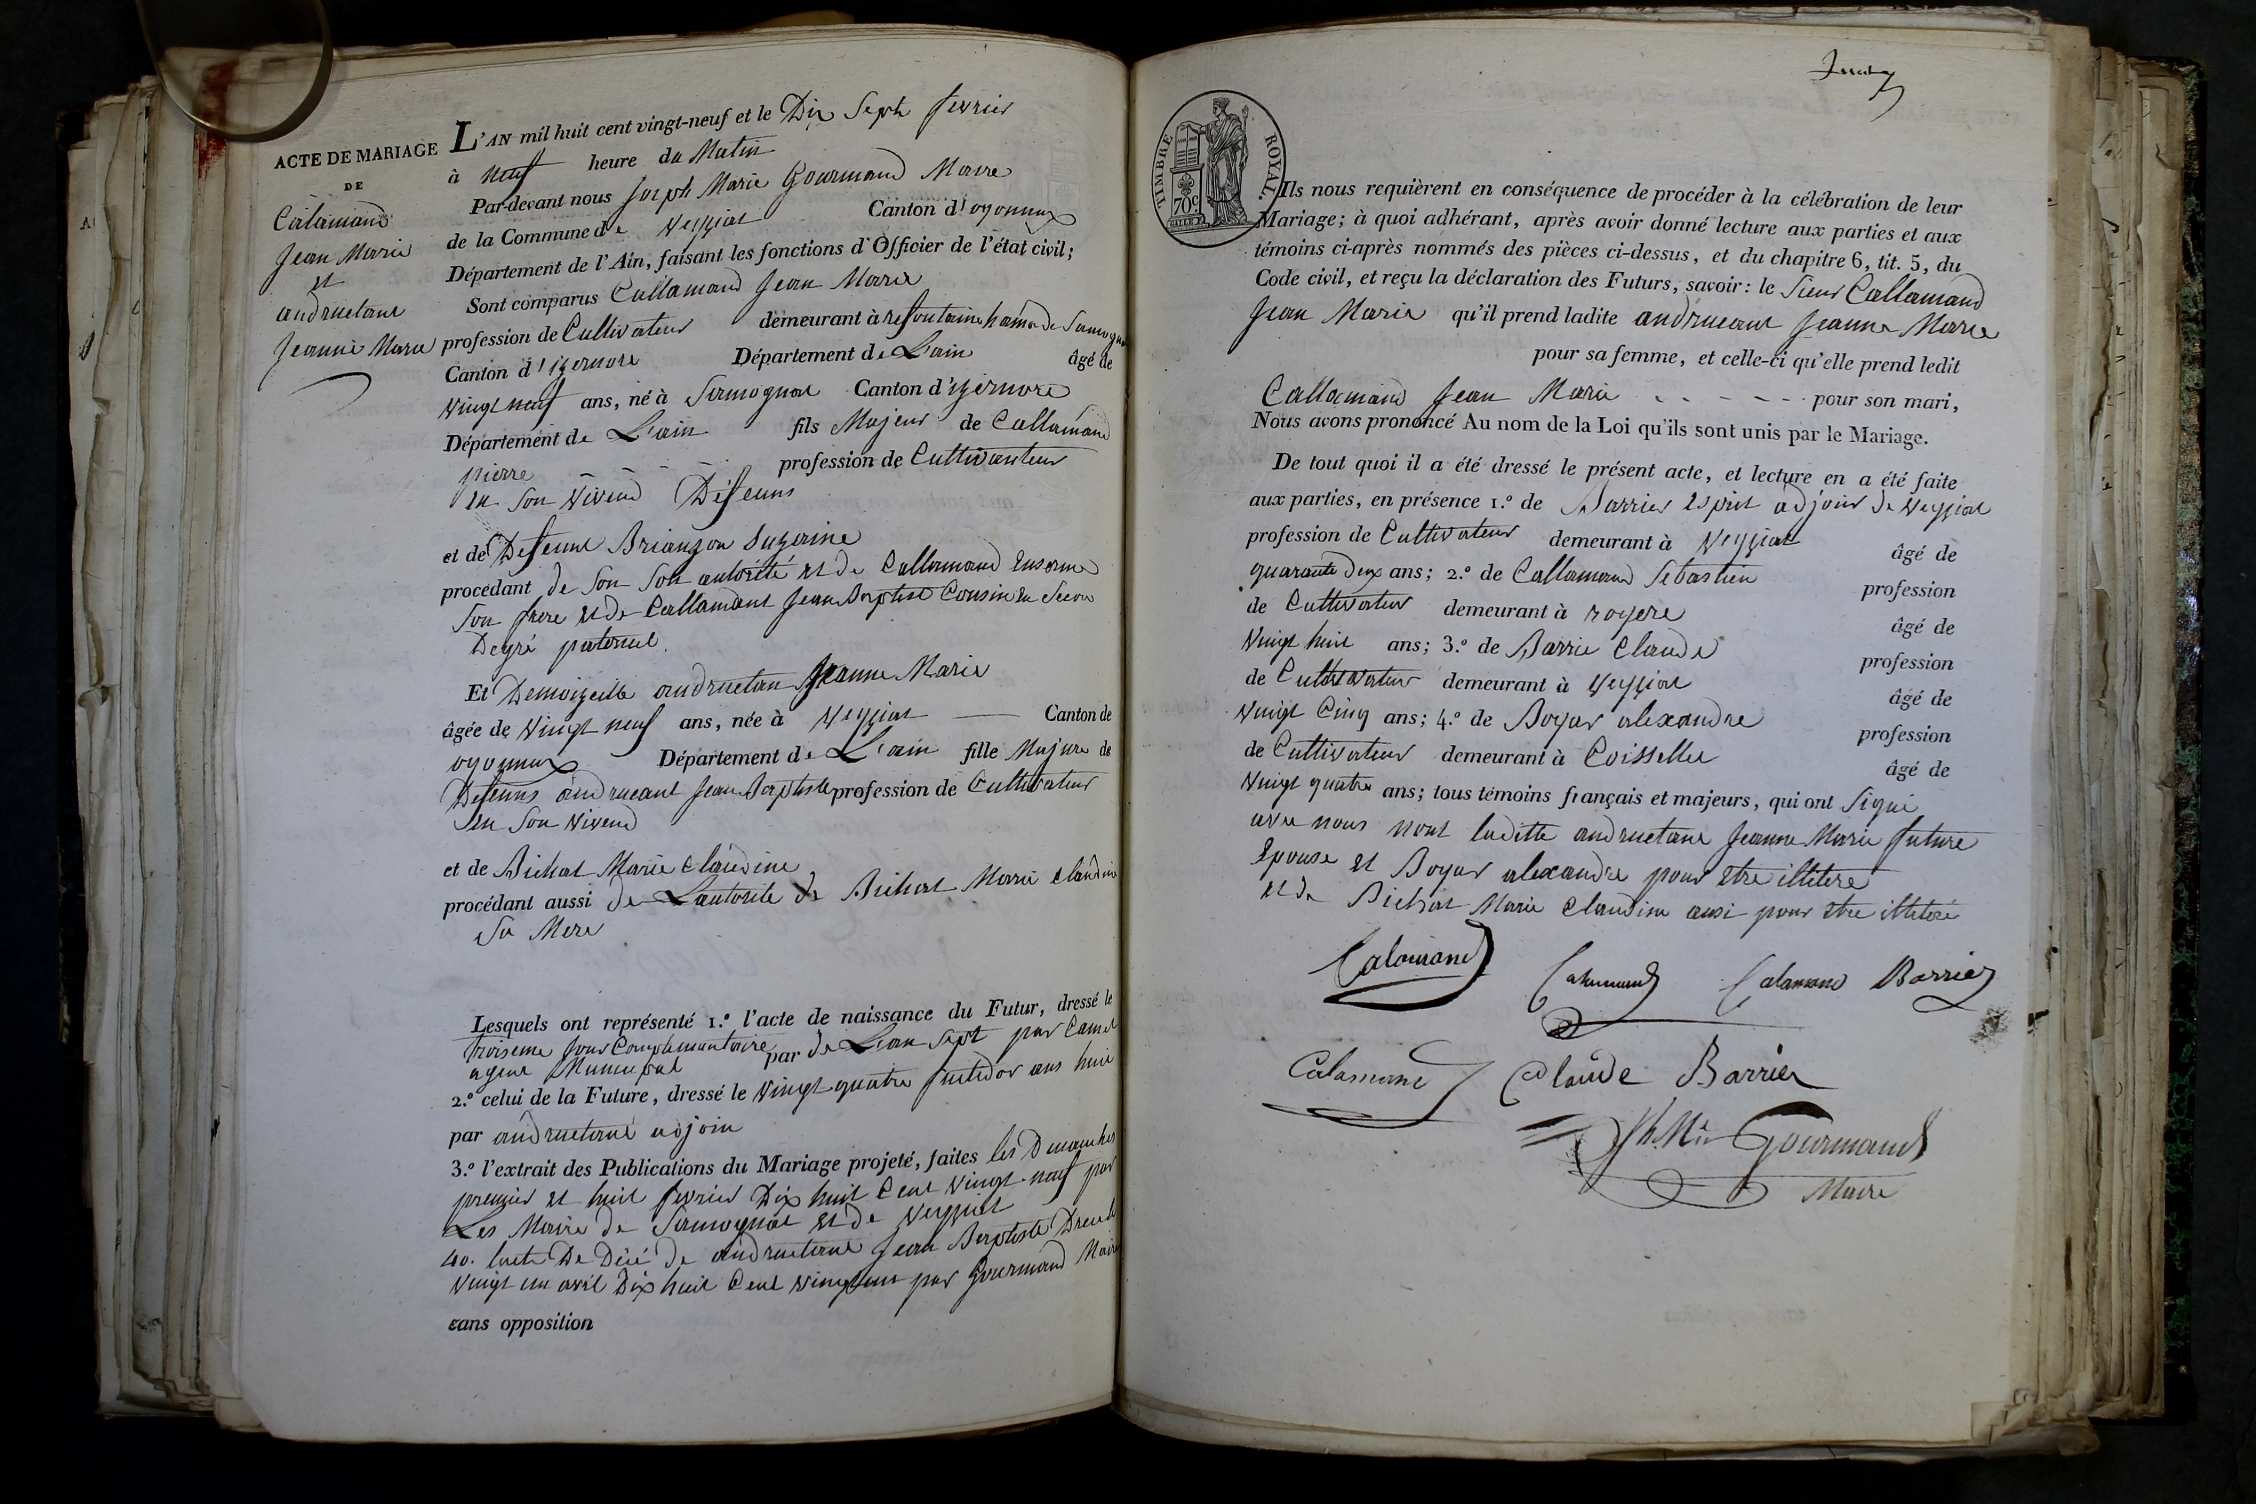 ACTE DE MARIAGE
DE
Calamand
Jean Marie
et
andruetant
Jeanne Marie
L'AN mil huit cent vingt-neuf et le Dix Sept fevrier
à neuf heure du Matin
Par-devant nous Joseph Marie Gourmand Maire
de la Commune de Veyziat Canton d'oyonnax
Département de l'Ain, faisant les fonctions d'Officier de l'état civil;
Sont comparus Callamand Jean Marie
profession de Cultivateur demeurant à
Canton d'izernore Département de L'ain âgé de
vingt neuf ans, né à Samognat Canton d'izernore
Département de L'ain fils Majeur de Callamand
pierre profession de Cultivateur
en Son vivend Defeuns
et de Defeunt Brianzon Suzaine
procédant de Son Son autorite et de Callamand
Son frere et de Callamant Jean Baptist Cousin en Secon
Degré paternel.
Et Demoizelle andruetan Jeanne Marie
âgée de vingt neuf ans, née à Veyziat Canton de
oyonnax Département de L'ain fille Majure de
Defeuns andrueant Jean Baptiste profession de Cultivateur
en Son vivend
et de Bichat Marie Claudine
procédant aussi de L'autorite de Bichat Marie Claudine
Sa Mere
Lesquels ont représenté 1.º l'acte de naissance du Futur, dressé le
troiseme jour Complemantaire de L'an Sept par
agent Municipal par
2.º celui de la Future, dressé le vingt quatre fructidor ans huit
par andruetant adjoin
3.º l'extrait des Publications du Mariage projeté, faites les Dimanches
premier et huit fevrier Dix huit Cent vingt-neuf par
Les Maire de Samognat et de Veyziat
4o. lacte De Décé de andruetant Jean Baptiste
vingt un avril Dix huit Cent vingt un par Gourmand Maire
sans opposition
TIMBRE ROYAL.
70c
Ils nous requièrent en conséquence de procéder à la célébration de leur
Mariage; à quoi adhérant, après avoir donné lecture aux parties et aux
témoins ci-après nommés des pièces ci-dessus, et du chapitre 6, tit. 5, du
Code civil, et reçu la déclaration des Futurs, savoir: le Sieur Callamand
Jean Marie qu'il prend ladite andrueant Jeanne Marie
pour sa femme, et celle-ci qu'elle prend ledit
Callamand Jean Marie - - - - - - pour son mari,
Nous avons prononcé Au nom de la Loi qu'ils sont unis par le Mariage.
De tout quoi il a été dressé le présent acte, et lecture en a été faite
aux parties, en présence 1.º de Barrier Esprit adjoin de Veyziat
profession de Cultivateur demeurant à Veyziat âgé de
quarante deux ans; 2.º de Callamand Sebastien profession
de Cultivateur demeurant à royere âgé de
vingt huit ans; 3.º de Barrie Claude profession
de Cultivateur demeurant à Veyziat âgé de
vingt Cinq ans; 4.º de Boyar alexandre profession
de Cultivateur demeurant à Coisselle âgé de
vingt quatre ans; tous témoins français et majeurs, qui ont Signé
avec nous nont laditte andruetant Jeanne Marie future
Epouse et Boyar alexandre pour etre illitere
et de Bichat Marie Claudine ausi pour etre illiteré
Calamand
Calamand Barrier
Calamand Claude Barrier
Jh. Mie Gourmand
Maire